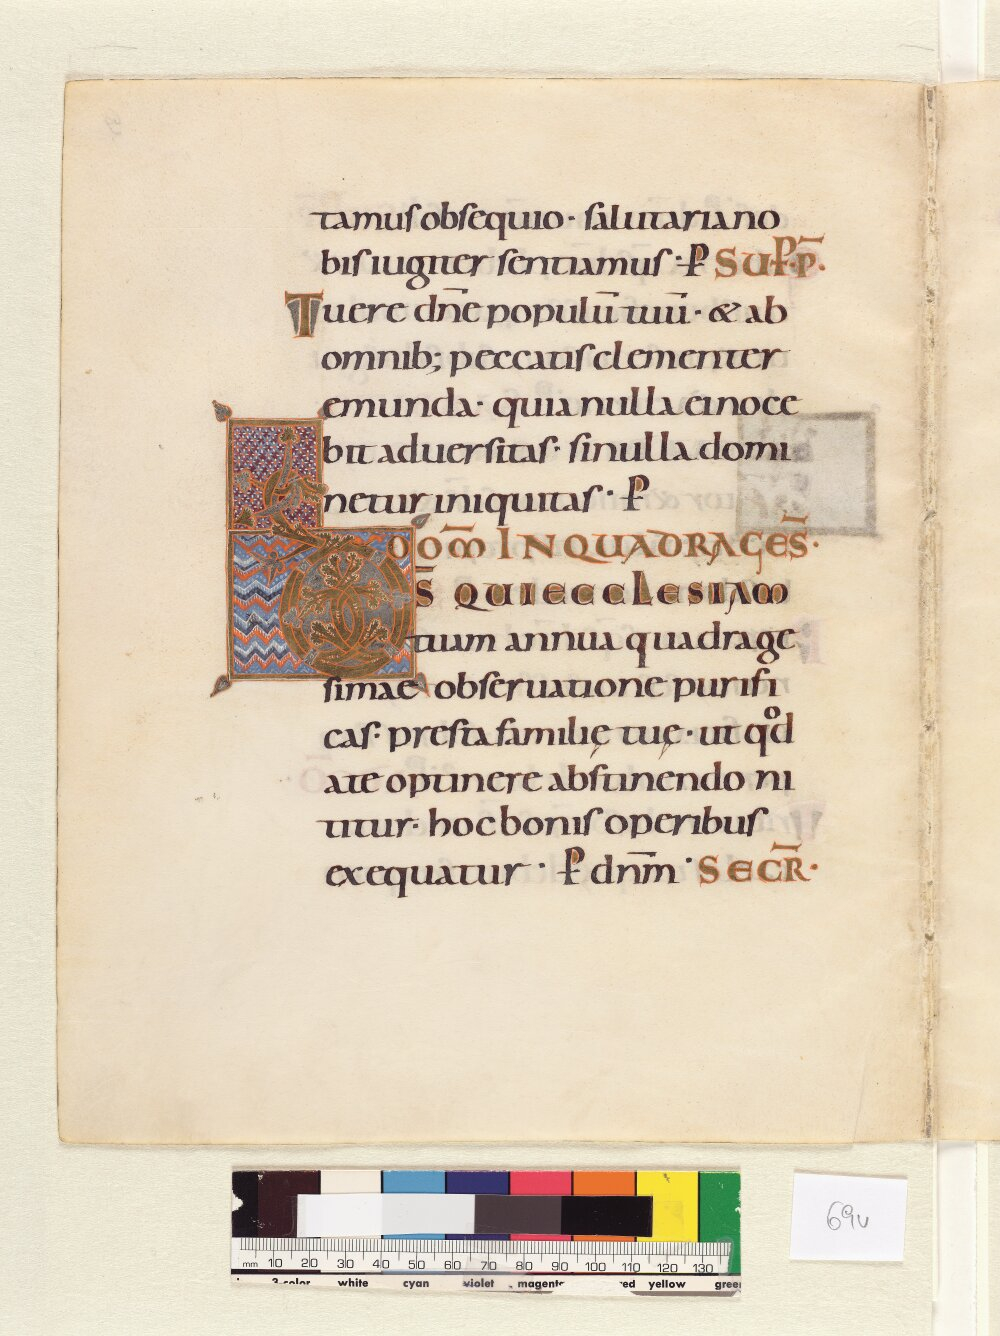 tamus obsequio · salutaria no
bis iugiter sentiamus · ꝑ SUP̄·P̄·
Tuere dn̄e populū tuū · & ab
omnib; peccatis clementer
emunda · quia nulla ei noce
bit aduersitas · si nulla domi
netur iniquitas · ꝑ
DOM̄ IN QUADRAGES̄·
DS̄ QUI ECCLESIAM
tuam annua quadrage
simae obseruatione purifi
cas · presta familię tuę · ut qd̊
a te optinere abstinendo ni
titur · hoc bonis operibus
exequatur · ꝑ dn̄m · SECR̄·
69v
mm 10 20 30 40 50 60 70 80 90 100 110 120 130
3-color white cyan violet magent red yellow green